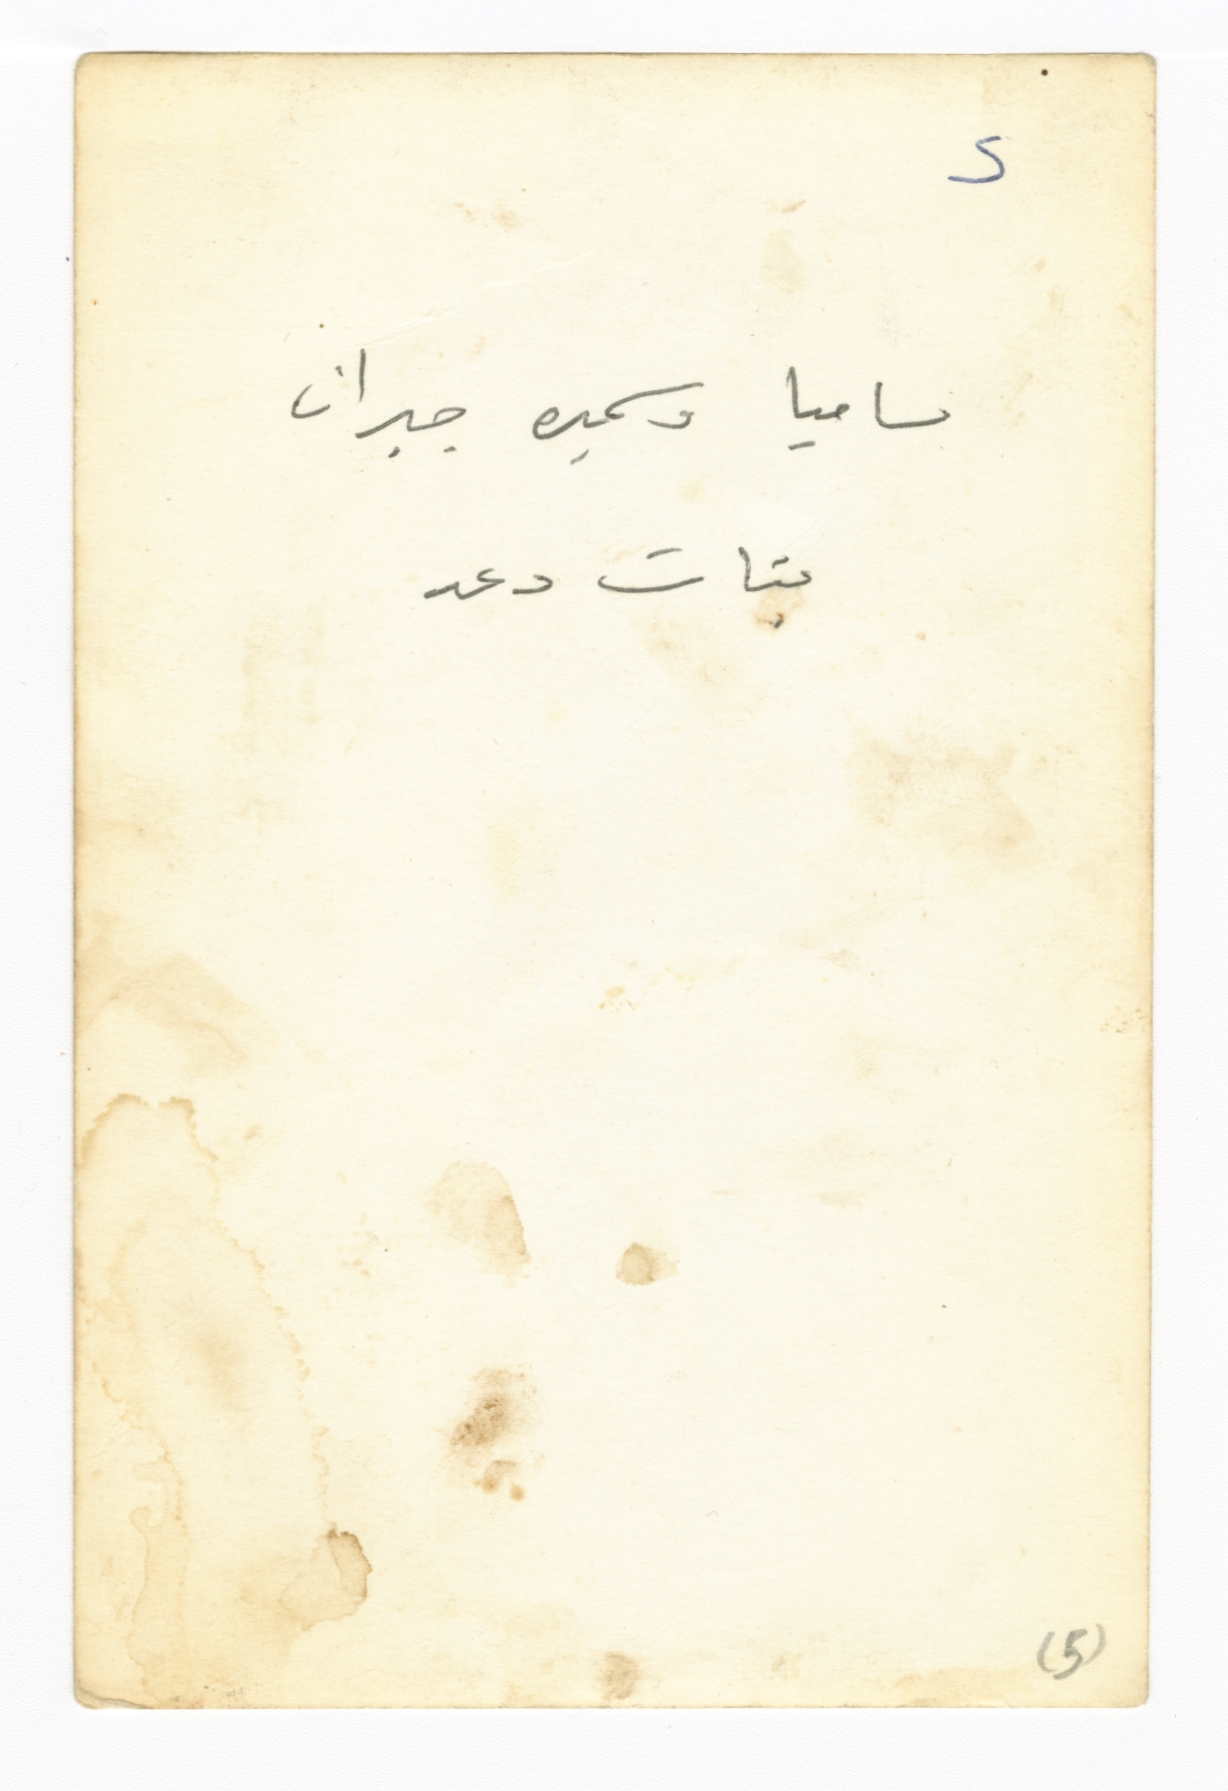 5
ساميا وسميره جبران
بنات دعد
(5)